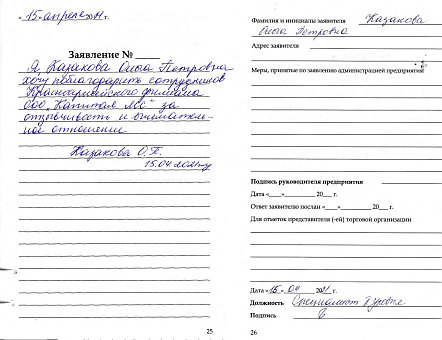 « 15 » апреля 2021 г.
Заявление №
Я Казакова Ольга Петровна
хочу поблагодарить сотрудников
Красноармейского филиала
ООО „Капитал МС" за
отзывчивость и вниматель-
ное отношение.
Казакова О.П.
15.04.2021 год
25
Фамилия и инициалы заявителя Казакова
Ольга Петровна
Адрес заявителя
Меры, принятые по заявлению администрацией предприятия
Подпись руководителя предприятия
Дата «___» ________ 20___ г.
Ответ заявителю послан «___» ________ 20___ г.
Для отметок представителя (-ей) торговой организации
Дата «15» 04 2021 г.
Должность Специалист I уровня
Подпись
26